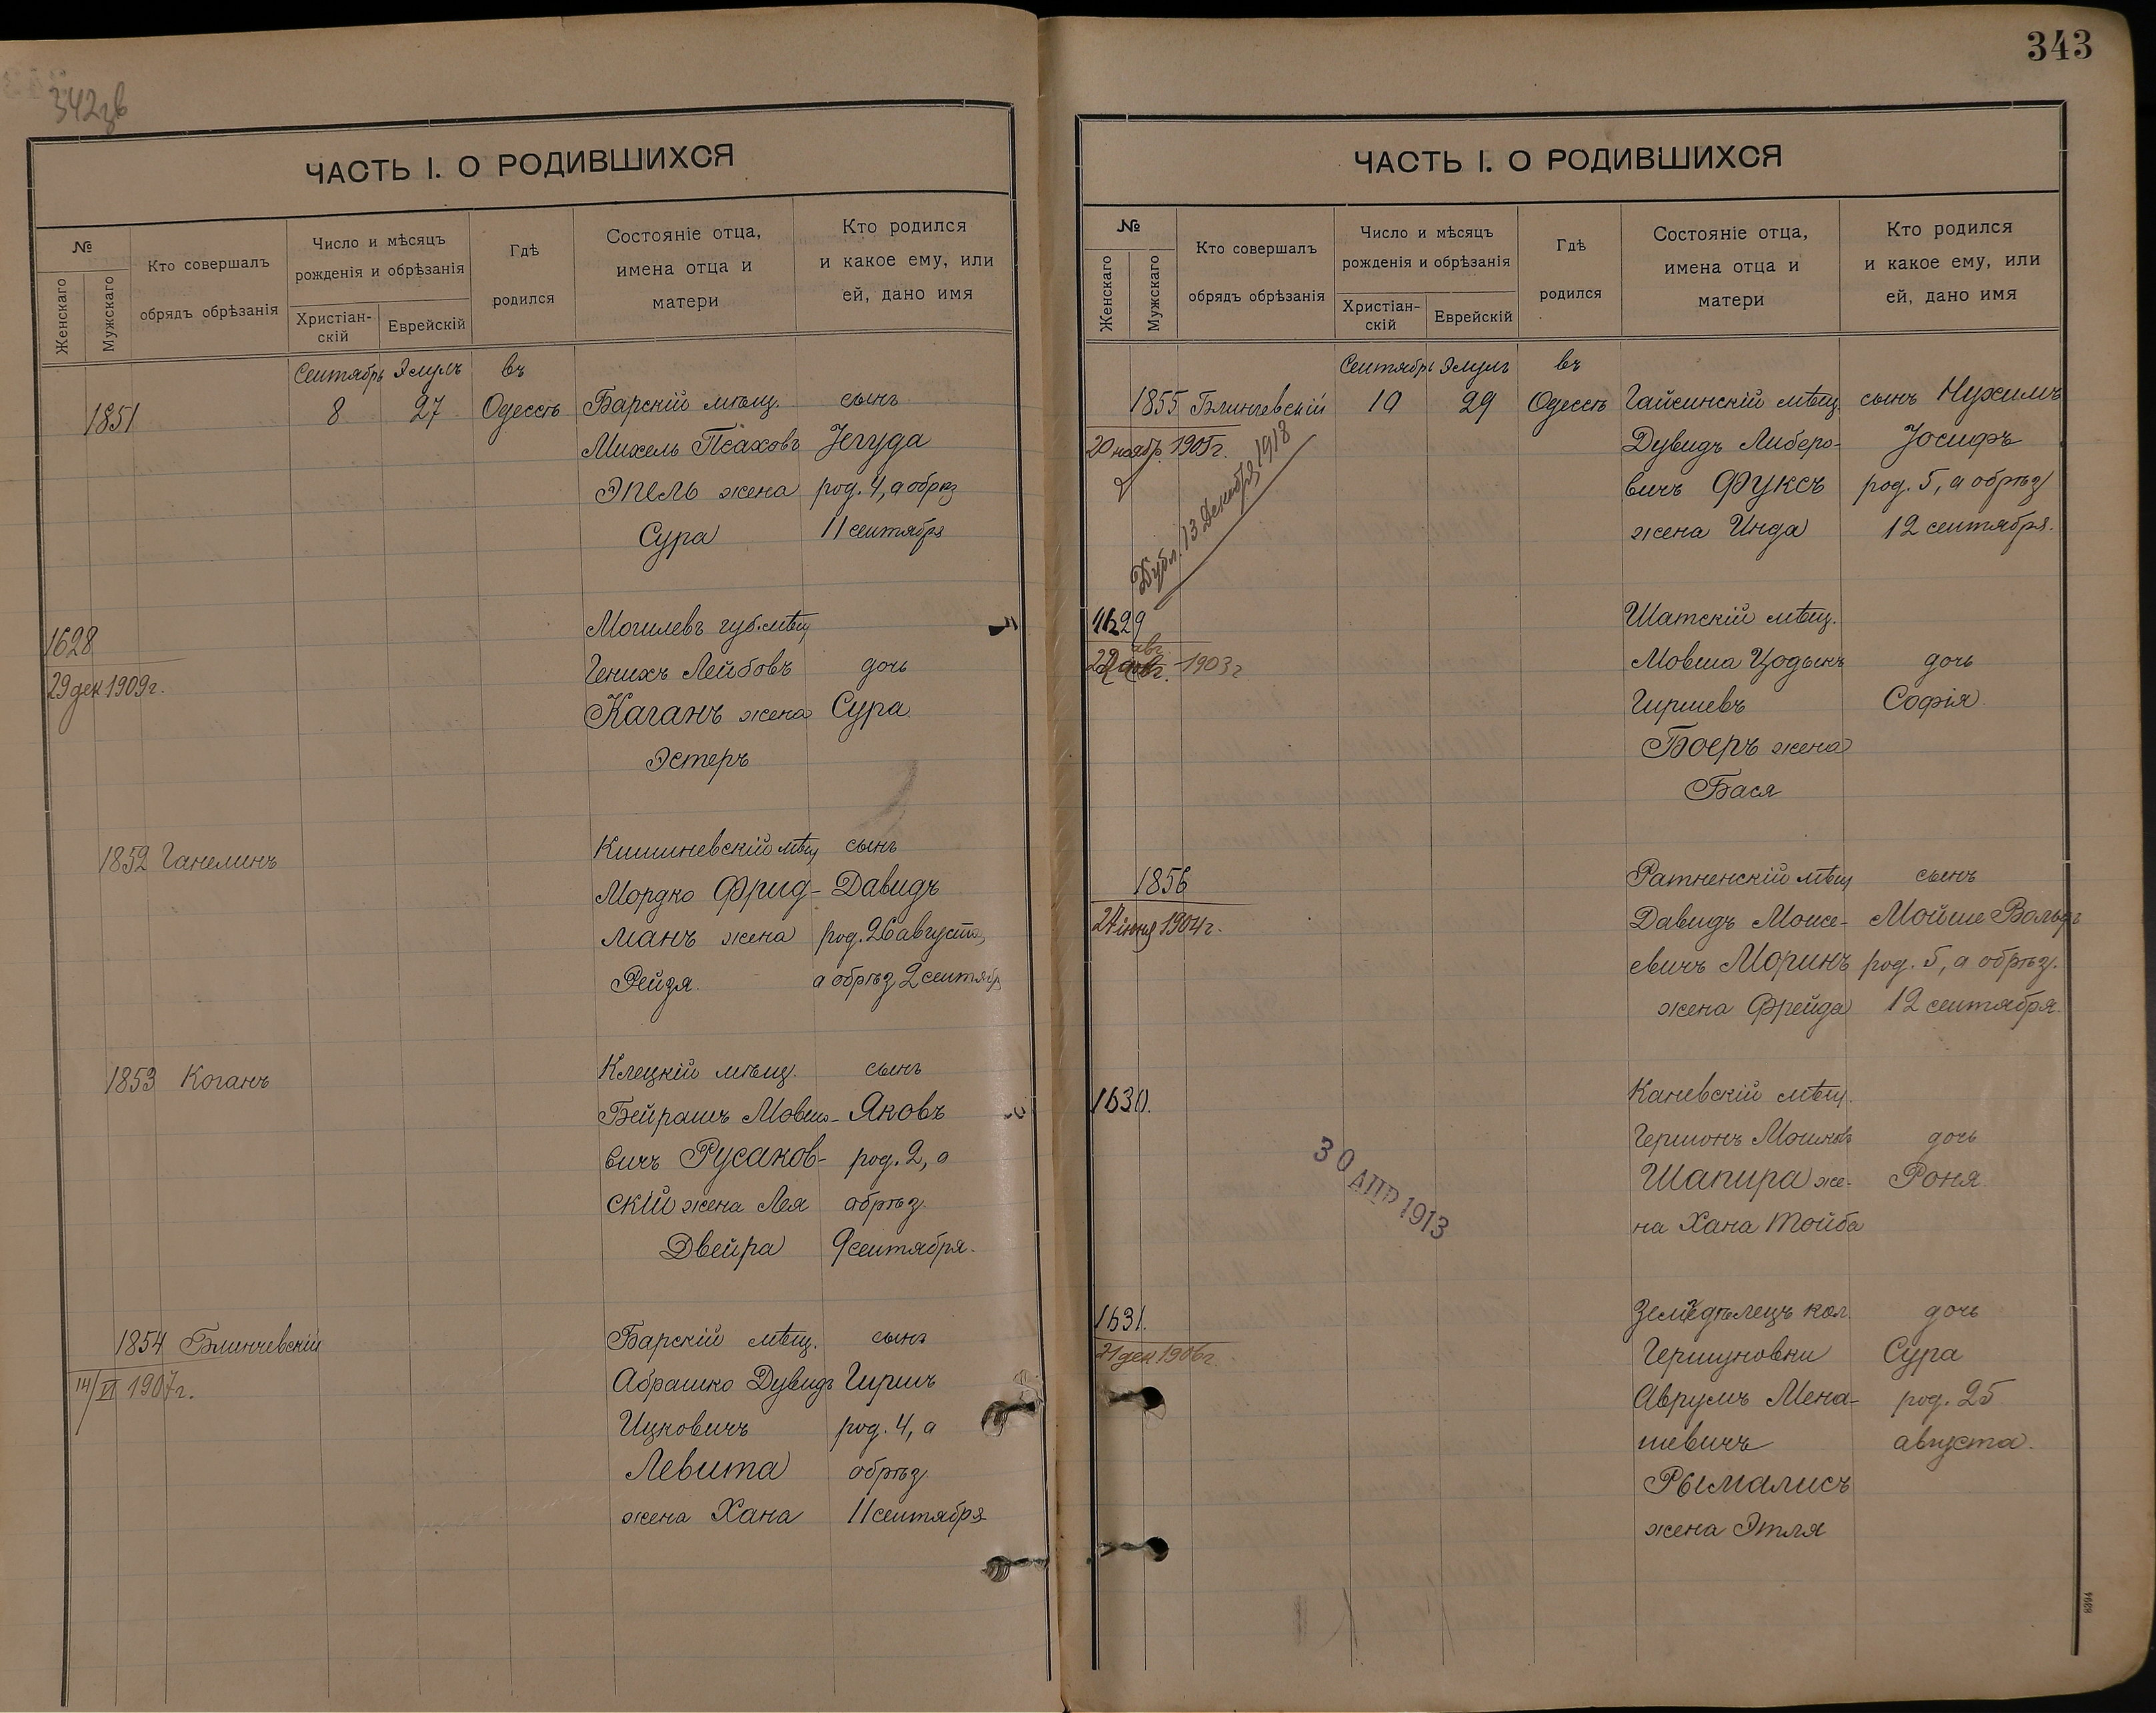 342зв
ЧАСТЬ I. О РОДИВШИХСЯ
№
Женскаго
Мужскаго
Кто совершалъ
обрядъ обрѣзанія
Число и мѣсяцъ
рожденія и обрѣзанія
Христіан-
скій
Еврейскій
Гдѣ
родился
Состояніе отца,
имена отца и
матери
Кто родился
и какое ему, или
ей, дано имя
Сентябрь Элулъ въ
1851 8 27 Одессѣ Барскій мѣщ. сынъ
Михель Псаховъ Іегуда
Эпель жена род. 4, а обрѣз
Сура 11 сентября
1628 Могилевъ губ. мѣщ
29 дек 1909 г. Генихъ Лейбовъ дочь
Каганъ жена Сура
Эстеръ
1852 Ганелинъ Кишиневскій мѣщ сынъ
Мордко Фрид- Давидъ
манъ жена род. 26 августа,
Рейзя. а обрѣз 2 сентябр
1853 Коганъ Клецкій мѣщ. сынъ
Бейрашъ Мовшо- Яковъ
вичъ Русаков- род. 2, а
скій жена Лея обрѣз.
Двейра 9 сентября.
1854 Блинчевскій Барскій мѣщ. сынъ
14/VI 1907 г. Абрашко Дувидъ Гиршъ
Ицковичъ род. 4, а
Левита обрѣз
жена Хана 11 сентября
343
ЧАСТЬ I. О РОДИВШИХСЯ
№
Женскаго
Мужскаго
Кто совершалъ
обрядъ обрѣзанія
Число и мѣсяцъ
рожденія и обрѣзанія
Христіан-
скій
Еврейскій
Гдѣ
родился
Состояніе отца,
имена отца и
матери
Кто родился
и какое ему, или
ей, дано имя
Сентябрь Элулъ въ
1855 Блинчевскій 10 29 Одессѣ Гайсинскій мѣщ. сынъ Нухимъ
20 ноябр. 1905 г. Дувидъ Либеро- Іосифъ
вичъ Фуксъ род. 5, а обрѣз
жена Инда 12 сентября.
Дубл. 13 Декабря 1918
1629 Шатскій мѣщ.
авг. 1903 г Мовша Цодыкъ дочь
Гиршевъ Софія
Боеръ жена
Бася
1856 Ратненскій мѣщ сынъ
1904 г. Давидъ Моисе- Мойше Вольфъ
евичъ Моринъ род. 5, а обрѣз.
жена Фрейда 12 сентября.
1630. Каневскій мѣщ.
Гершонъ Мошковъ дочь
Шапира же- Роня
на Хана Тойба
30 АПР 1913
1631. Земледѣлецъ кол. дочь
21 дек 1906 г. Гершуновки Сура
Аврумъ Мена- род. 25
шевичъ августа.
Рымалисъ
жена Этля
8394